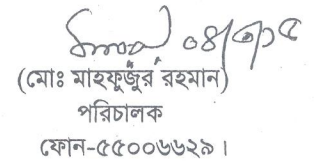 (মোঃ মাহফুজুর রহমান)
পরিচালক
ফোন-৫৫০০৬৬২৯।